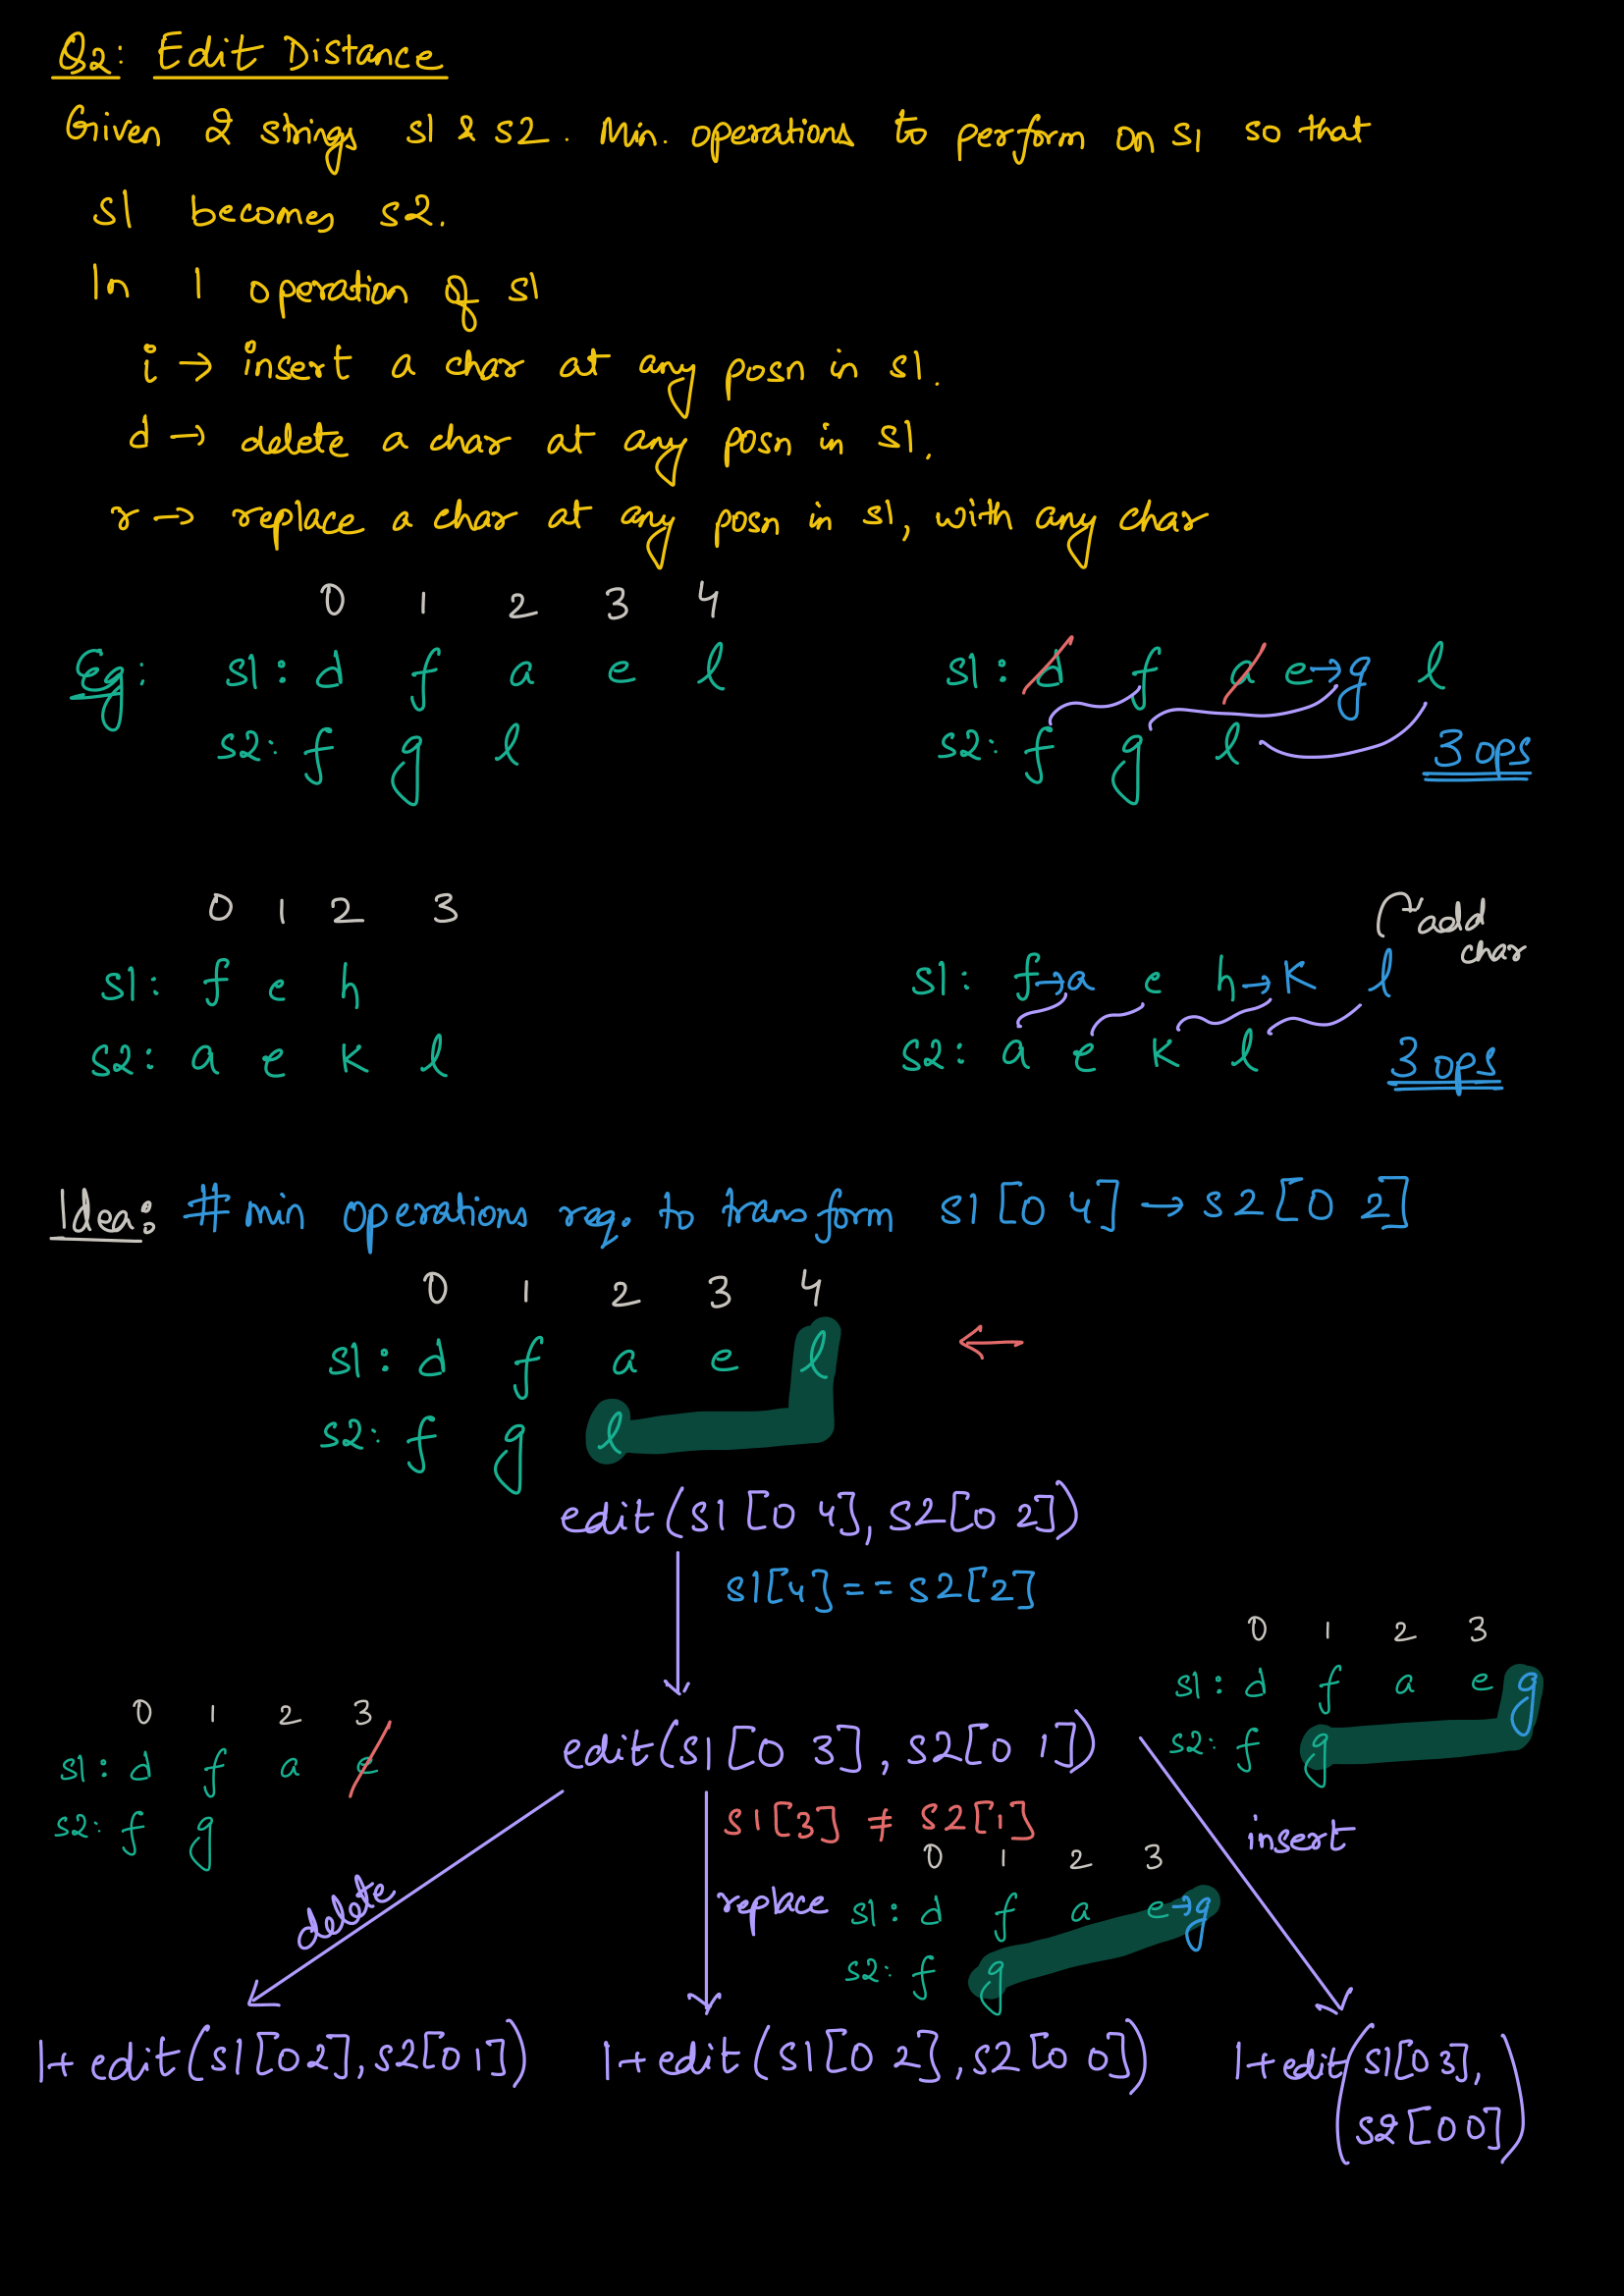 Q2: Edit Distance
Given 2 strings s1 & s2. Min. operations to perform on s1 so that
s1 becomes s2.
In 1 operation of s1
i → insert a char at any posn in s1.
d → delete a char at any posn in s1.
r → replace a char at any posn in s1, with any char
0 1 2 3 4
Eg: s1: d f a e l
s2: f g l
s1: d f a e→g l
s2: f g l 3 ops
0 1 2 3
s1: f e h
s2: a e k l
add
char
s1: f→a e h→k l
s2: a e k l
3 ops
Idea: # min operations req. to transform s1[0 4] → s2[0 2]
0 1 2 3 4
s1: d f a e l ←
s2: f g l
edit(s1[0 4], s2[0 2])
s1[4] == s2[2]
0 1 2 3
s1: d f a e g
s2: f g
insert
0 1 2 3
s1: d f a e
s2: f g
delete
edit(s1[0 3], s2[0 1])
s1[3] ≠ s2[1]
0 1 2 3
replace s1: d f a e→g
s2: f g
1+ edit(s1[0 2], s2[0 1])
1+ edit(s1[0 2], s2[0 0])
1+ edit(s1[0 3],
s2[0 0])